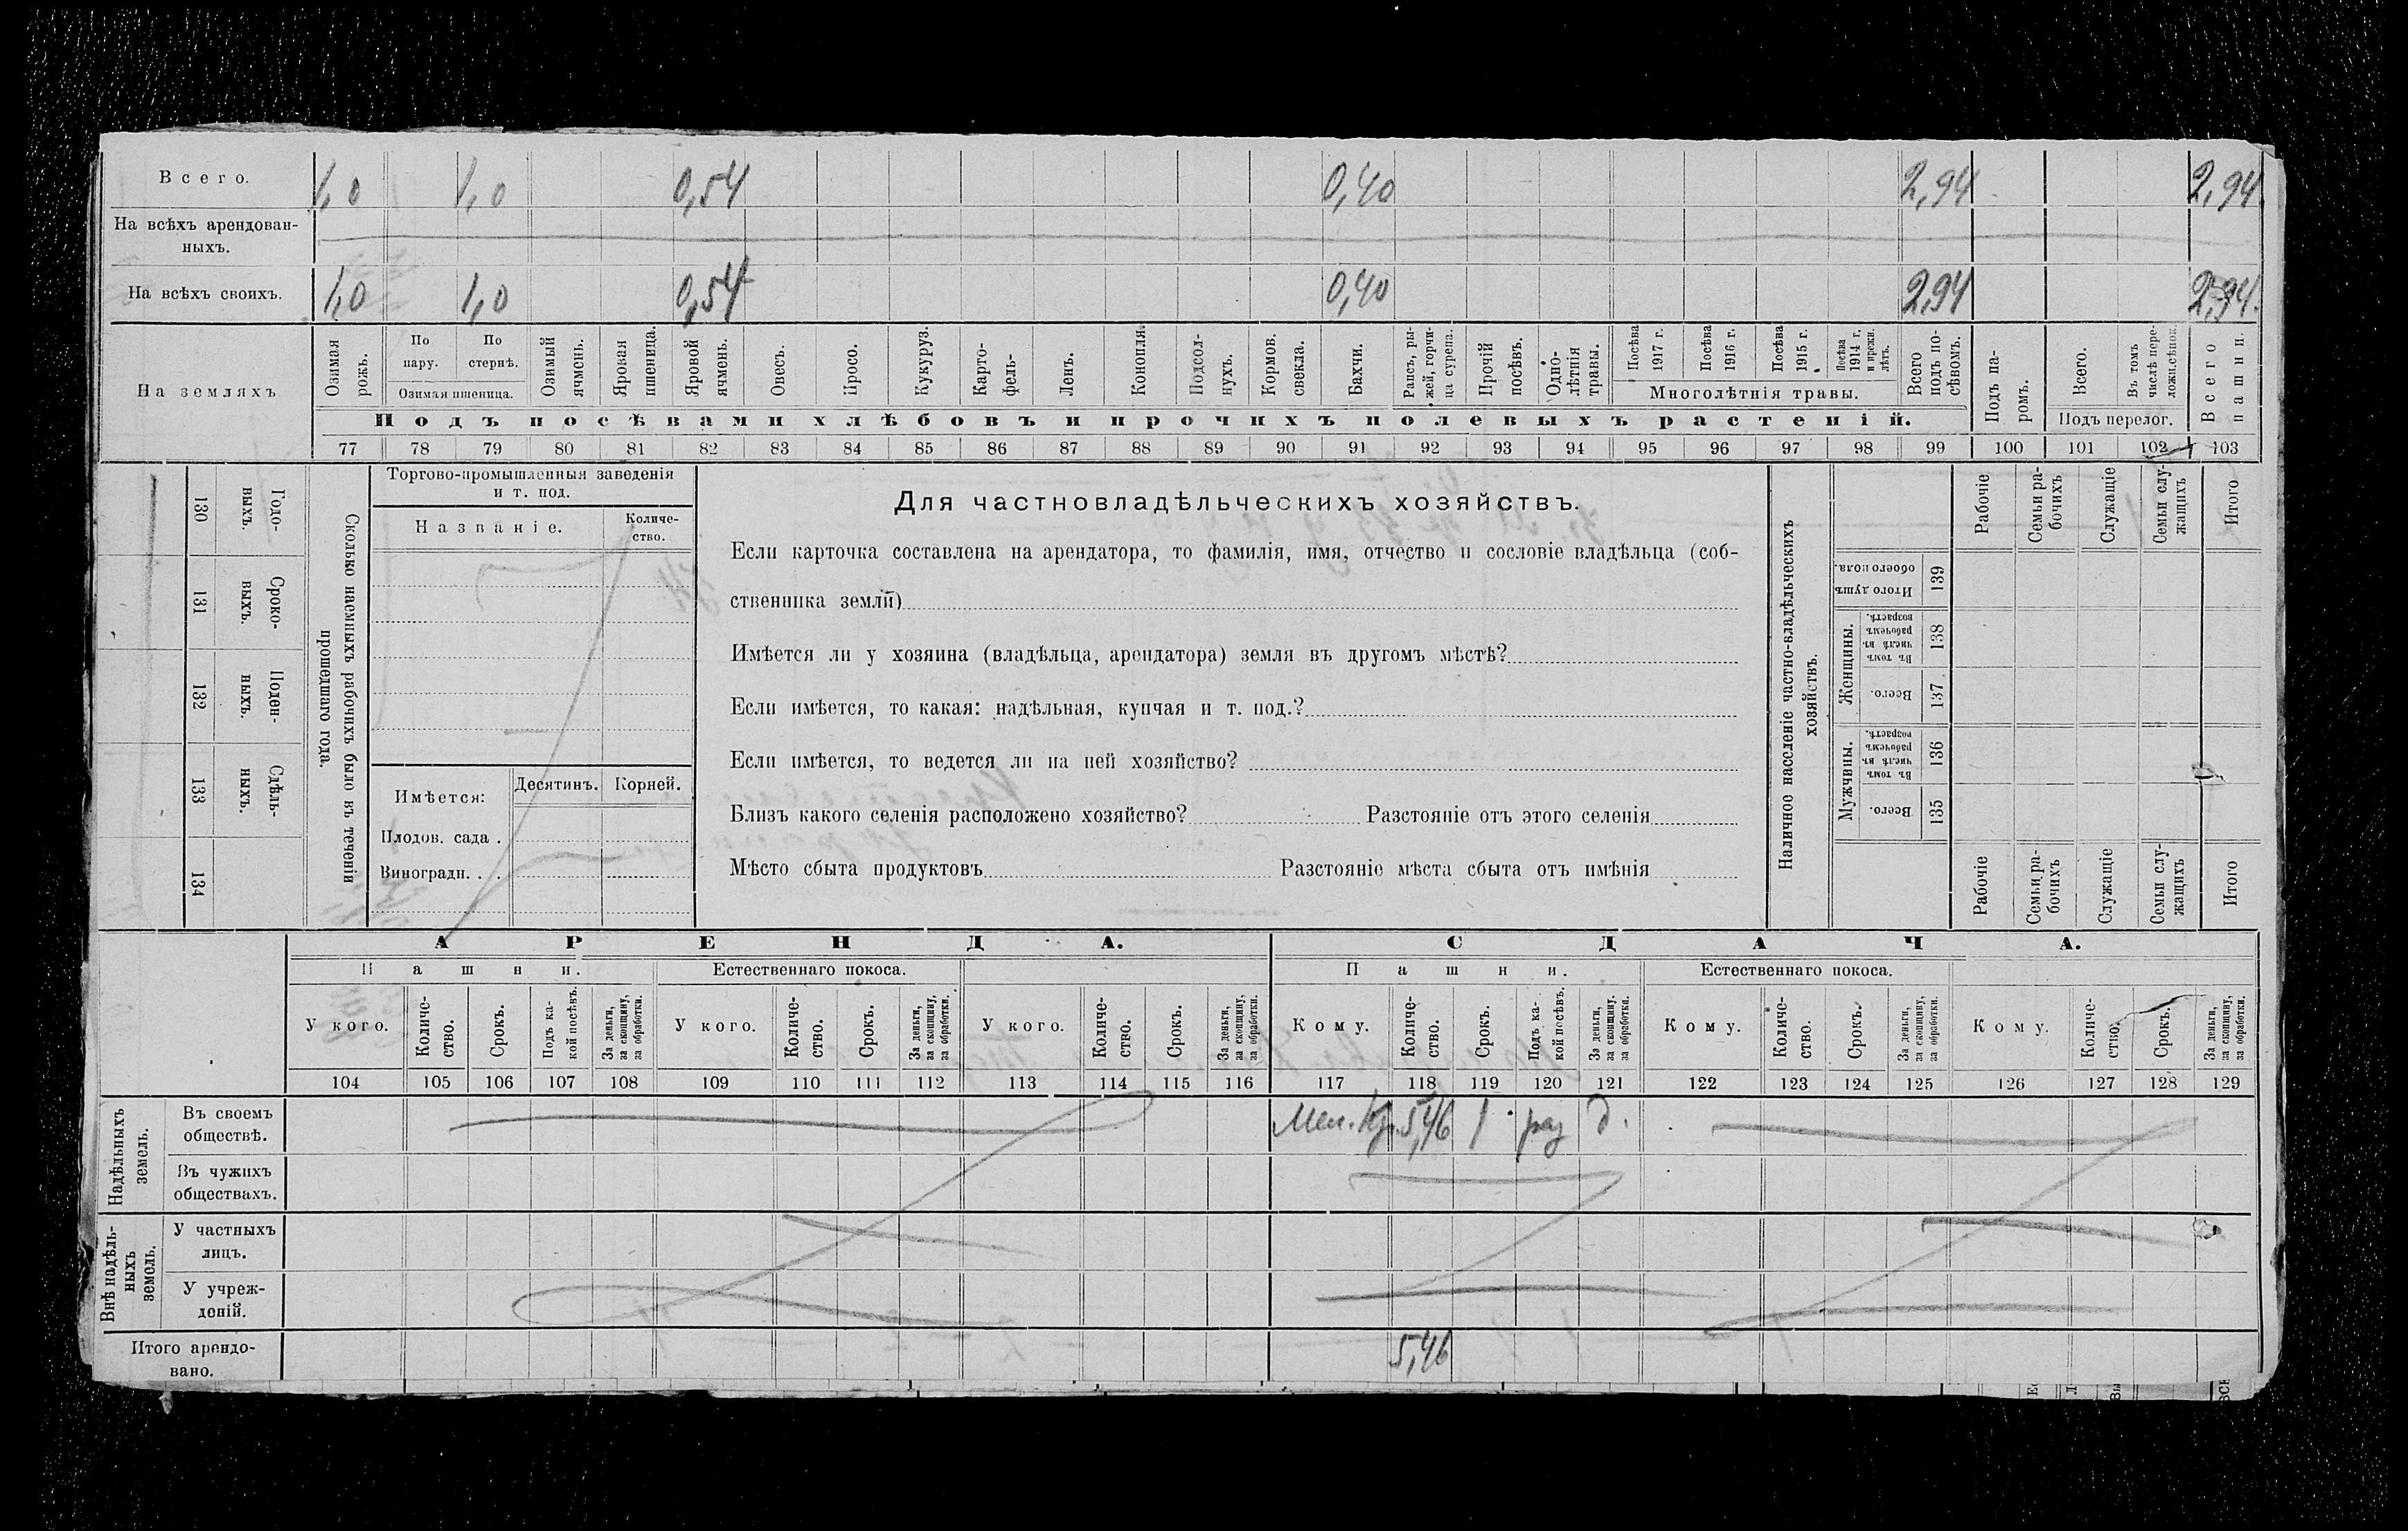 Всего. 1,0 1,0 0,54 0,40 2,94 2,94
На всѣхъ арендован-
ныхъ.
На всѣхъ своихъ. 1,0 1,0 0,54 0,40 2,94 2,94
На земляхъ
Озимая рожь.
По пару.
По стернѣ.
Озимая пшеница.
Озимый ячмень.
Яровая пшеница.
Яровой ячмень.
Овесъ.
Просо.
Кукуруз.
Карто-
фель-
Ленъ.
Конопля.
Подсол-
нухъ.
Кормов. свекла.
Бахчи.
Рапсъ, ры-
жей, горчи-
ца сурепа.
Прочій посѣвъ.
Одно-
лѣтнія травы.
Посѣва 1917 г.
Посѣва 1916 г.
Посѣва 1915 г.
Посѣва 1914 г. и прежн. лѣтъ.
Многолѣтнія травы.
Всего подъ по-
сѣвомъ.
Подъ па-
ромъ.
Всего.
Въ томъ числѣ пере-
ложн.сѣнок.
Подъ перелог.
Всего пашни.
Подъ посѣвами хлѣбовъ и прочихъ полевыхъ растеній.
77 78 79 80 81 82 83 84 85 86 87 88 89 90 91 92 93 94 95 96 97 98 99 100 101 102 103
130 Годо-
выхъ.
131 Сроко-
выхъ.
132 Поден-
ныхъ.
133 Сдѣль-
ныхъ.
134
Сколько наемныхъ рабочихъ было въ теченіи
прошедшаго года.
Торгово-промышленныя заведенія
и т. под.
Названіе.
Количе-
ство.
Имѣется: Десятинъ. Корней.
Плодов. сада .
Виноградн. . .
Для частновладѣльческихъ хозяйствъ.
Если карточка составлена на арендатора, то фамилія, имя, отчество и сословіе владѣльца (соб-
ственника земли)
Имѣется ли у хозяина (владѣльца, арендатора) земля въ другомъ мѣстѣ?
Если имѣется, то какая: надѣльная, купчая и т. под.?
Если имѣется, то ведется ли на ней хозяйство?
Близъ какого селенія расположено хозяйство? Разстояніе отъ этого селенія
Мѣсто сбыта продуктовъ Разстояніе мѣста сбыта отъ имѣнія
Наличное населеніе частно-владѣльческихъ
хозяйствъ.
Рабочіе
Семьи ра-
бочихъ
Служащіе
Семьи слу-
жащихъ
Итого
Итого душъ обоего пола. 139
Женщины.
Въ томъ числѣ въ рабочемъ возрастѣ. 138
Всего. 137
Мужчины.
Въ томъ числѣ въ рабочемъ возрастѣ. 136
Всего. 135
Рабочіе
Семьи ра-
бочихъ
Служащіе
Семьи слу-
жащихъ
Итого
АРЕНДА. СДАЧА.
Пашни. Естественнаго покоса. Пашни. Естественнаго покоса.
У кого.
Количе-
ство.
Срокъ.
Подъ ка-
кой посѣвъ.
За деньги, за скопщину, за обработки.
У кого.
Количе-
ство.
Срокъ.
За деньги, за скопщину, за обработки.
У кого.
Количе-
ство.
Срокъ.
За деньги, за скопщину, за обработки.
Кому.
Количе-
ство.
Срокъ.
Подъ ка-
кой посѣвъ.
За деньги, за скопщину, за обработки.
Кому.
Количе-
ство.
Срокъ.
За деньги, за скопщину, за обработки.
Кому.
Количе-
ство.
Срокъ.
За деньги, за скопщину, за обработки.
104 105 106 107 108 109 110 111 112 113 114 115 116 117 118 119 120 121 122 123 124 125 126 127 128 129
Надѣльныхъ
земель.
Въ своемъ
обществѣ. 5,46 1 раз д.
Въ чужихъ
обществахъ.
Внѣ надѣль-
ныхъ
земель.
У частныхъ
лицъ.
У учреж-
деній.
Итого арендо-
вано. 5,46